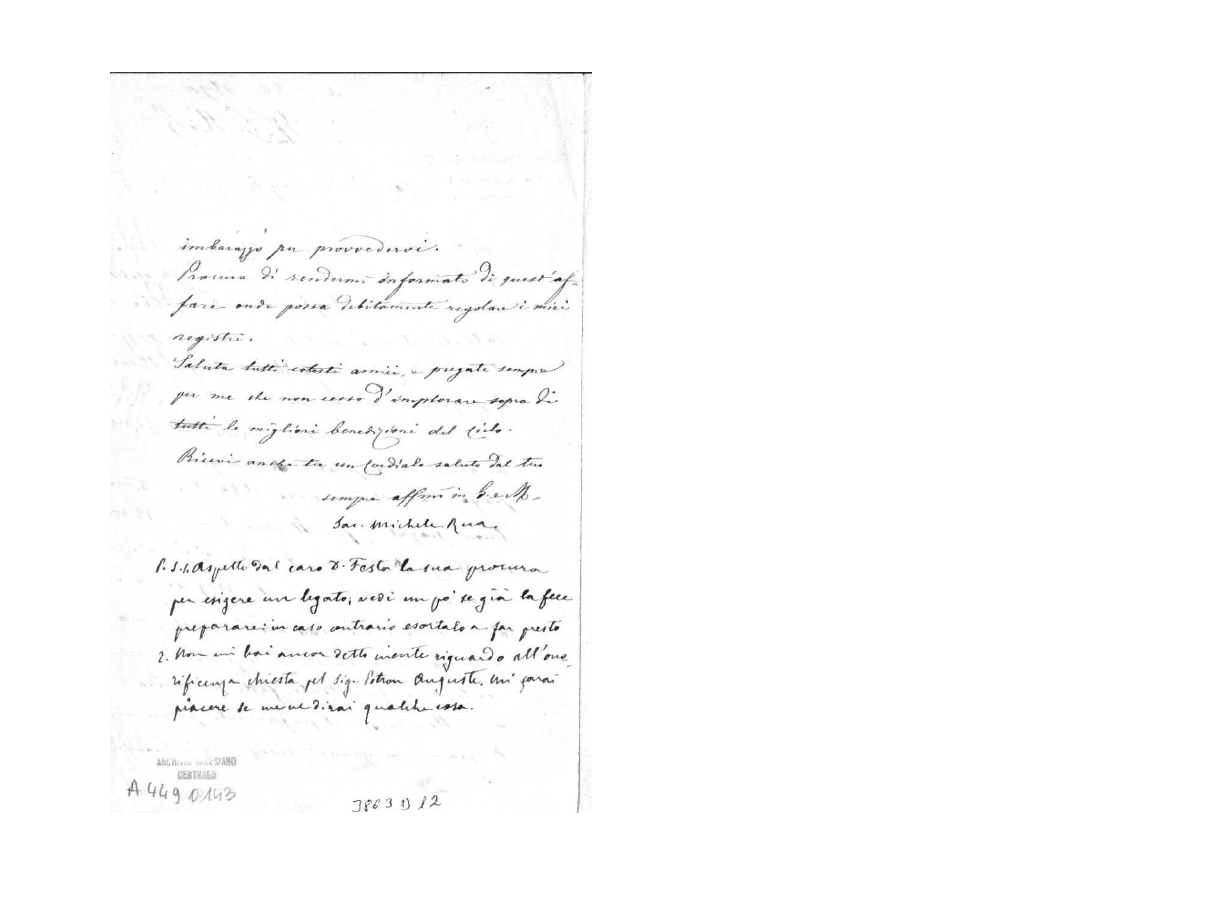 imbarazzo per provvedervi.
Procura di rendermi informato di quest'af-
fare onde possa debitamente regolare i miei
registri.
Saluta tutti cotesti amici, e pregate sempre
per me che non cesso d'implorare sopra di
tutti le migliori benedizioni del Cielo.
Ricevi anche tu un cordiale saluto dal tuo
sempre affmo in G. e M.
Sac. Michele Rua.
P. S. 1. Aspetto dal caro D. Festa la sua procura
per esigere un legato; vedi un po' se già la fece
preparare: in caso contrario esortalo a far presto
2. Non mi hai ancor detto niente riguardo all'ono-
rificenza chiesta pel Sig. Potron Auguste. Mi farai
piacere se me ne dirai qualche cosa.
ARCHIVIO SALESIANO
CENTRALE
A 449 0143
3863 D 12